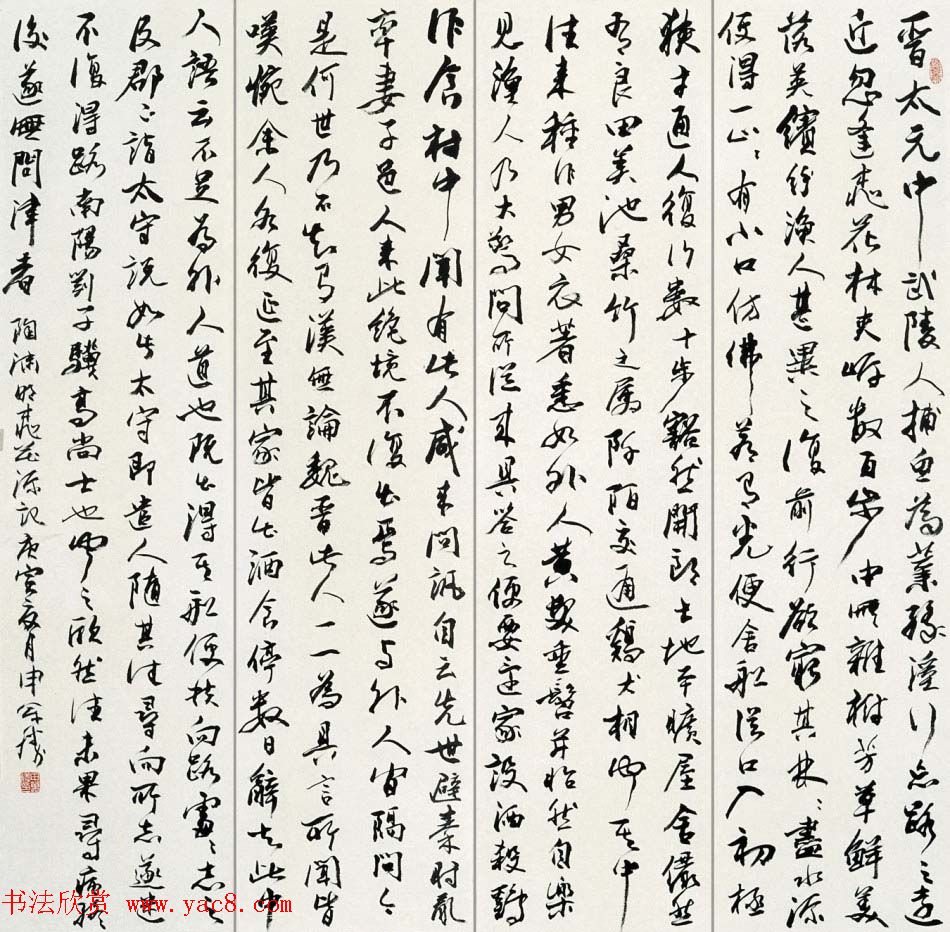 晋太元中武陵人捕鱼为業缘溪行忘路之遠
近忽逢桃花林夹岸数百步中無雜樹芳草鲜美
落英缤纷渔人甚異之復前行欲窮其林林盡水源
便得一山山有小口仿佛若有光便舍船從口入初極
狭才通人復行数十步豁然開朗土地平曠屋舍儼然
有良田美池桑竹之属阡陌交通鷄犬相聞其中
往来種作男女衣著悉如外人黄髮垂髫并怡然自樂
見漁人乃大驚問所從来具答之便要还家設酒殺鷄
作食村中聞有此人咸来問訊自云先世避秦时亂
率妻子邑人来此绝境不復出焉遂与外人间隔問今
是何世乃不知有漢無論魏晋此人一一為具言所聞皆
嘆惋余人各復延至其家皆出酒食停数日辭去此中
人語云不足為外人道也既出得其船便扶向路處處志之
及郡下詣太守説如此太守即遣人随其往尋向所志遂迷
不復得路南陽劉子驥高尚士也聞之欣然往未果尋病终
後遂無問津者 陶渊明桃花源记 庚寅夏月申
书法欣赏 www.yac8.com